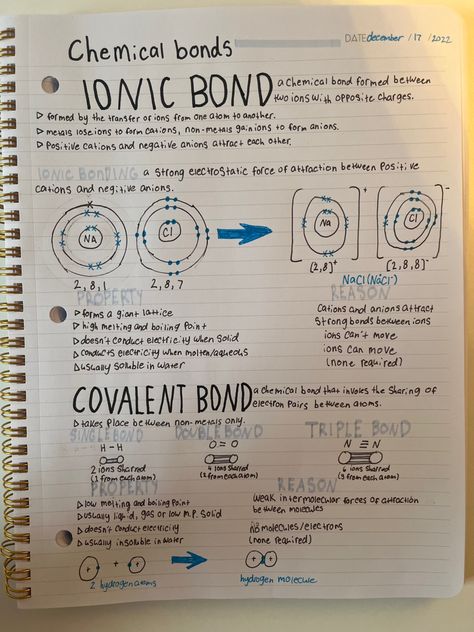 DATE december /17 /2022
Chemical bonds
IONIC BOND a chemical bond formed between
two ions with opposite charges.
▷ formed by the transfer or ions from one atom to another.
▷ metals lose ions to form cations, non-metals gain ions to form anions.
▷ Positive cations and negative anions attract each other.
IONIC BONDING a strong electrostatic force of attraction between positive
cations and negitive anions.
NA Cl Na + Cl -
2,8,1 2,8,7 [2,8]+ [2,8,8]-
NaCl (Na+Cl-)
PROPERTY REASON
▷ forms a giant lattice Cations and anions attract
▷ high melting and boiling Point Strong bonds between ions
▷ doesn't conduct electricity when Solid ions can't move
▷ Conducts electricity when molten/aqueous ions can move
▷ usually Soluble in water (none required)
COVALENT BOND a chemical bond that involes the sharing of
electron Pairs between atoms.
▷ takes place between non-metals only.
SINGLE BOND DOUBLE BOND TRIPLE BOND
H - H O = O N ≡ N
2 ions Sharred 4 ions Sharred 6 ions Sharred
(1 from each atom) (2 from each atom) (3 from each atom)
PROPERTY REASON
▷ low melting and boiling Point Weak intermolecular forces of attraction
▷ usually liquid, gas or low M.P. Solid between molecules
▷ doesn't conduct electricity no molecules/electrons
▷ usually insoluble in water (none required)
+ + + +
2 hydrogen atoms hydrogen molecule